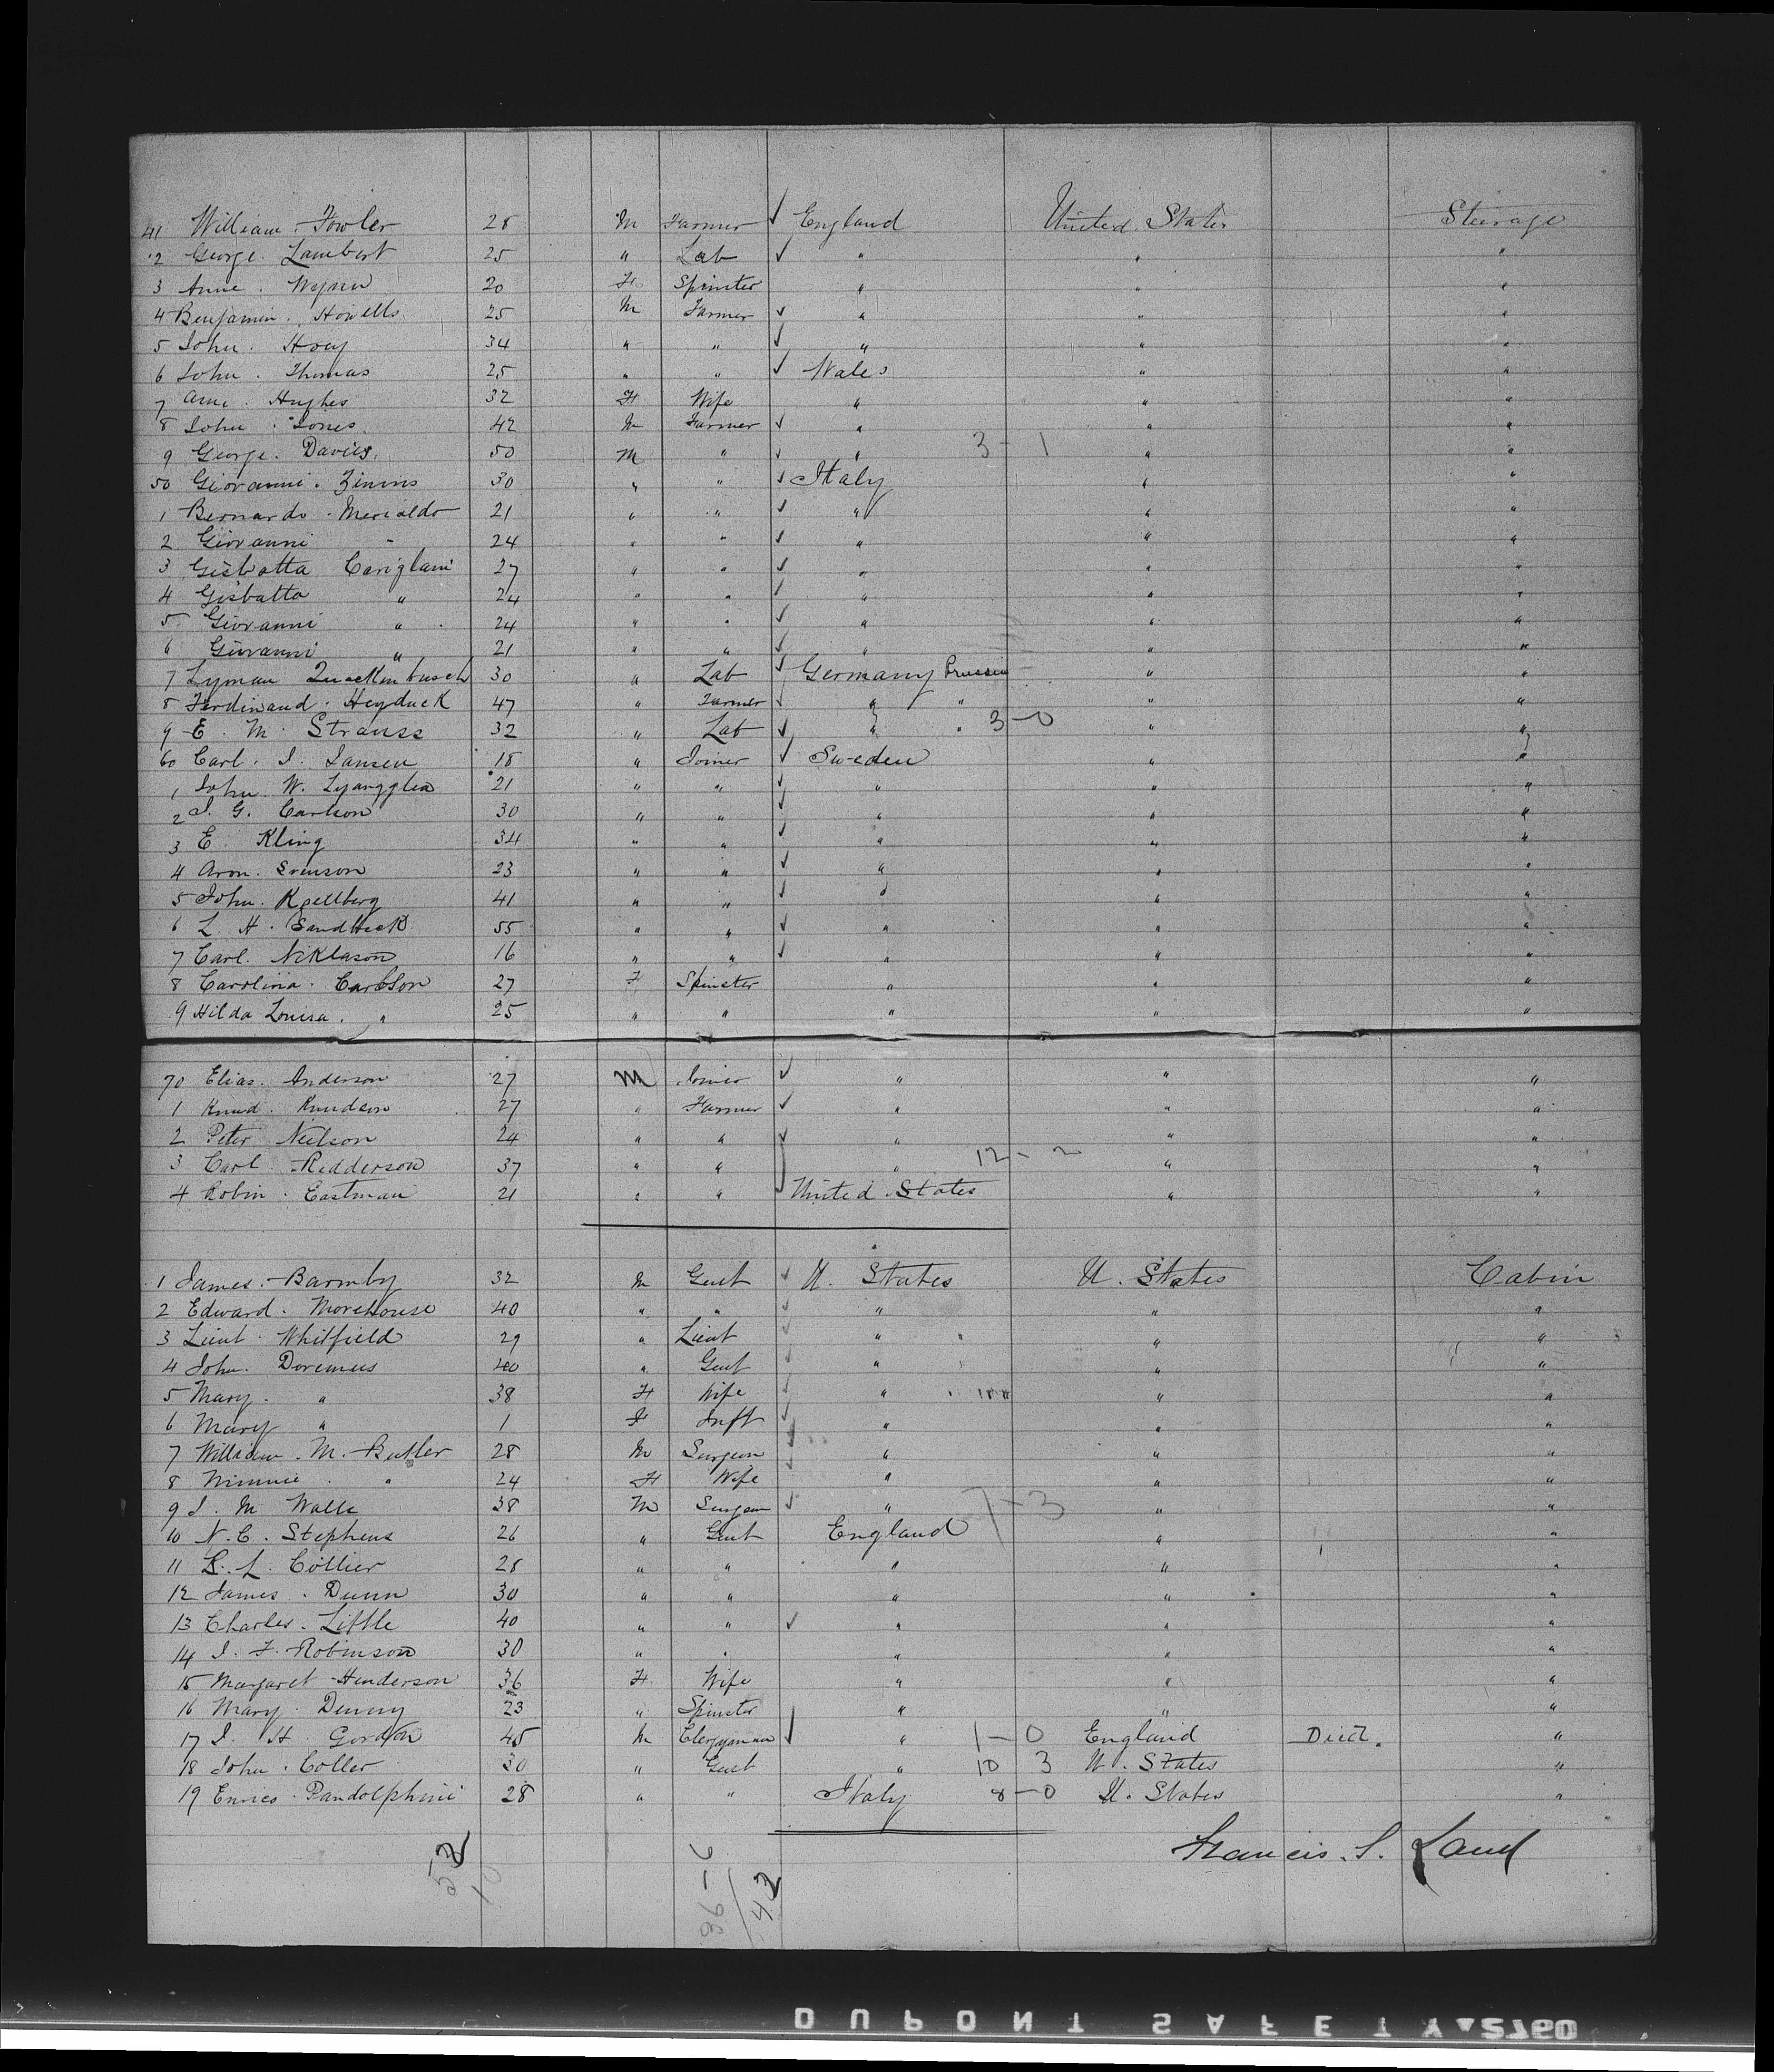 41 William Fowler 28 M Farmer ✓ England United States Steerage
2 George Lambert 25 " Lab ✓ " " "
3 Anne 20 F Spinster " " "
4 Benjamin Howells 25 M Farmer ✓ " " "
5 John Hoey 34 " " ✓ " " "
6 John Thomas 25 " " ✓ Wales " "
7 Ann Hughes 32 F Wife " " "
8 John Jones 42 M Farmer ✓ " " "
9 George Davies 50 M " ✓ " 3-1 " "
50 Giovanni 30 " " ✓ Italy " "
1 Bernardo Merialdo 21 " " ✓ " " "
2 Giovanni " 24 " " ✓ " " "
3 Gisbatta Cariglani 27 " " ✓ " " "
4 Gisbatta " 24 " " ✓ " " "
5 Giovanni " 24 " " ✓ " " "
6 Giovanni " 21 " " ✓ " " "
7 Lyman Quackenbusch 30 " Lab ✓ Germany Prussia " "
8 Ferdinand Heyduck 47 " Farmer ✓ " " " "
9 E. M. Strauss 32 " Lab ✓ " " 3-0 " "
60 Carl I. Jansen 18 " Joiner ✓ Sweden " "
1 John W. 21 " " ✓ " " "
2 J. G. Carlson 30 " " ✓ " " "
3 E. Kling 34 " " ✓ " " "
4 Aron Svenson 23 " " ✓ " " "
5 John Kjellberg 41 " " ✓ " " "
6 L. H. Sandbeck 55 " " ✓ " " "
7 Carl Niklason 16 " " ✓ " " "
8 Carolina Carlson 27 F Spinster " " "
9 Hilda Louisa " 25 " " " " "
70 Elias Anderson 27 M Joiner ✓ " " "
1 Knud Knudson 27 " Farmer ✓ " " "
2 Peter Neilson 24 " " ✓ " " "
3 Carl Redderson 37 " " " 12-2 " "
4 Robin Eastman 21 " " United States " "
1 James Barmby 32 M Gent ✓ U. States U. States Cabin
2 Edward Morehouse 40 " " ✓ " " "
3 Lieut Whitfield 29 " Lieut ✓ " " "
4 John Doremus 40 " Gent ✓ " " "
5 Mary " 38 F Wife ✓ " " "
6 Mary " 1 F Inft ✓ " " "
7 William M. Butler 28 M Surgeon ✓ " " "
8 Minnie " 24 F Wife ✓ " " "
9 J. M Walle 38 M Surgeon ✓ " 7-3 " "
10 N. C. Stephens 26 " Gent England " "
11 L. Collier 28 " " " " "
12 James Dunn 30 " " " " "
13 Charles Little 40 " " ✓ " " "
14 J. F. Robinson 30 " " " " "
15 Margaret Henderson 36 F Wife " " "
16 Mary Denny 23 " Spinster " " "
17 J. H Gordon 45 M Clergyman ✓ " 1-0 England Died. "
18 John Coller 30 " Gent " 10 3 U. States "
19 Enrico Pandolphini 28 " " Italy 8-0 U. States "
Francis. S. Land
52
10
36-6
42
DUPONT SAFETY 2760